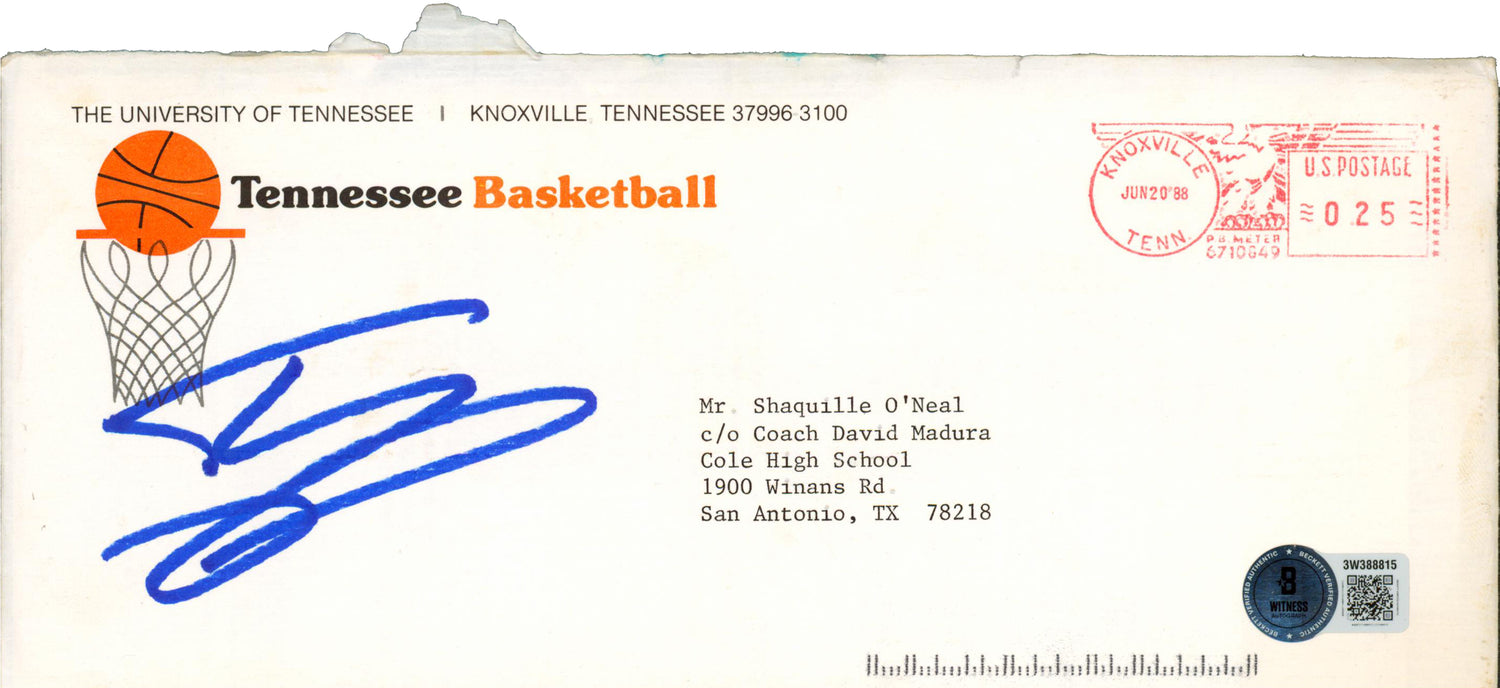 THE UNIVERSITY OF TENNESSEE | KNOXVILLE, TENNESSEE 37996-3100
Tennessee Basketball
KNOXVILLE
JUN 20 '88
TENN.
P.B. METER
6710849
U.S. POSTAGE
0.25
Mr. Shaquille O'Neal
c/o Coach David Madura
Cole High School
1900 Winans Rd.
San Antonio, TX 78218
BECKETT VERIFIED AUTHENTIC ★ BECKETT VERIFIED AUTHENTIC ★
B
WITNESS
AUTOGRAPH
3W388815